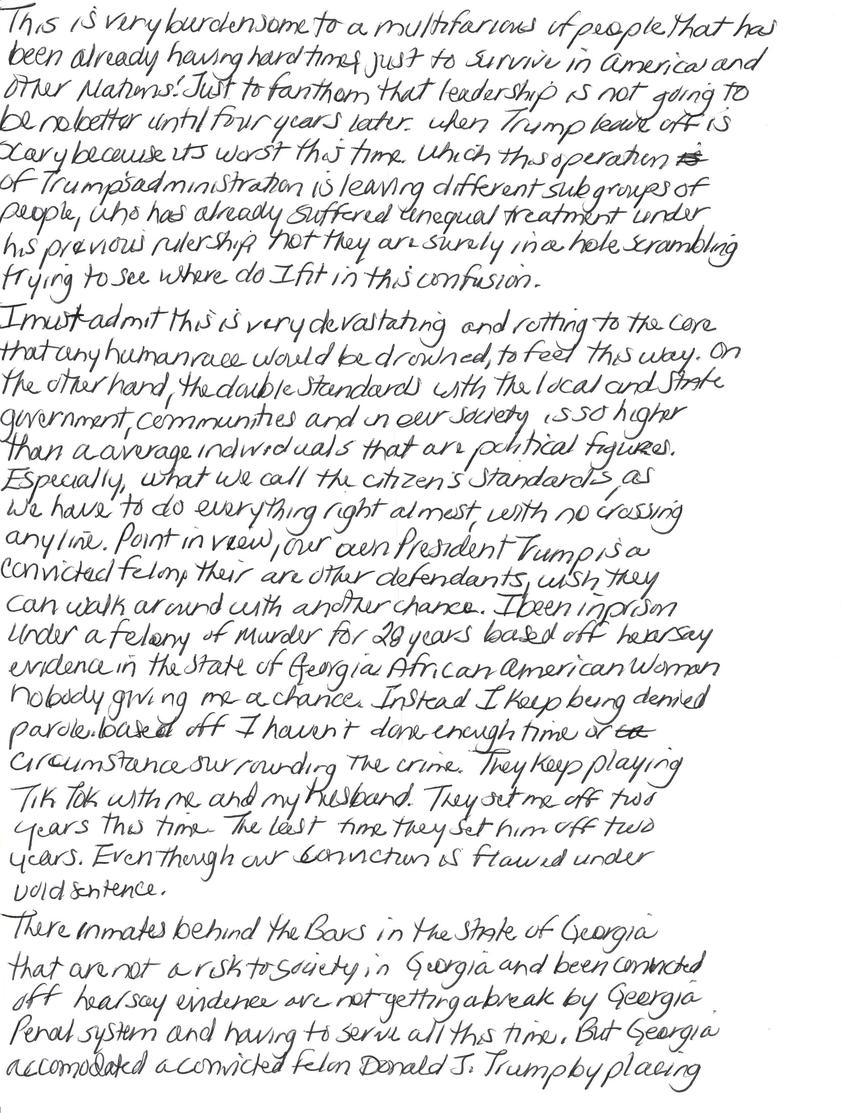 This is very burdensome to a multifarious of people that has
been already having hard times just to survive in America and
other Nations! Just to fanthom that leadership is not going to
be no better until four years later. when Trump leave off is
scary because its worst this time. Which this operation is
of Trump's administration is leaving different subgroups of
people, who has already suffered unequal treatment under
his previous rulership not they are surely in a hole scrambling
trying to see where do I fit in this confusion.
I must admit this is very devastating and rotting to the core
that any human race would be drowned, to feel this way. On
the other hand, the double standards with the local and state
government, communities and in our society is so higher
than a average individuals that are political figures.
Especially, what we call the citizen's standards, as
we have to do everything right almost, with no crossing
any line. Point in view, our own President Trump is a
convicted felon, their are other defendants, wish they
can walk around with another chance. I been in prison
under a felony of Murder for 28 years based off hearsay
evidence in the state of Georgia African American Woman
nobody giving me a chance. Instead I keep being denied
parole. based off I haven't done enough time or
circumstance surrounding the crime. They keep playing
Tik Tok with me and my husband. They set me off two
years this time. The last time they set him off two
years. Even though our conviction is flawed under
void sentence.
There inmates behind the Bars in the state of Georgia
that are not a risk to society in Georgia and been convicted
off hearsay evidence are not getting a break by Georgia
Penal system and having to serve all this time. But Georgia
accomodated a convicted felon Donald J. Trump by placing